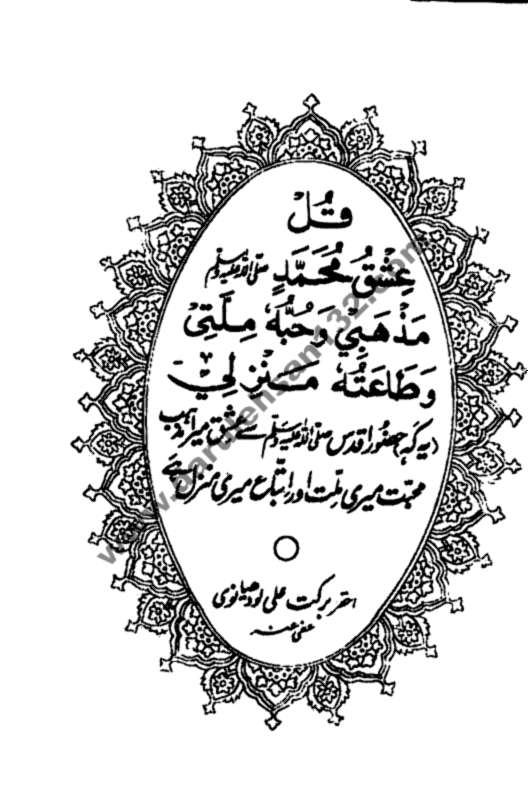 قُلْ
عِشْقُ مُحَمَّدٍ صلی اللہ علیہ وسلم
مَذْهَبِيْ وَحُبُّهٗ مِلَّتِيْ
وَطَاعَتُهٗ مَنْزِلِيْ
دیہ کہ حضور اقدس صلی اللہ علیہ وسلم سے عشق میرا مذہب
محبت میری ملت اور اتباع میری منزل ہے
احقر برکت علی لودھیانوی
عفی عنہ